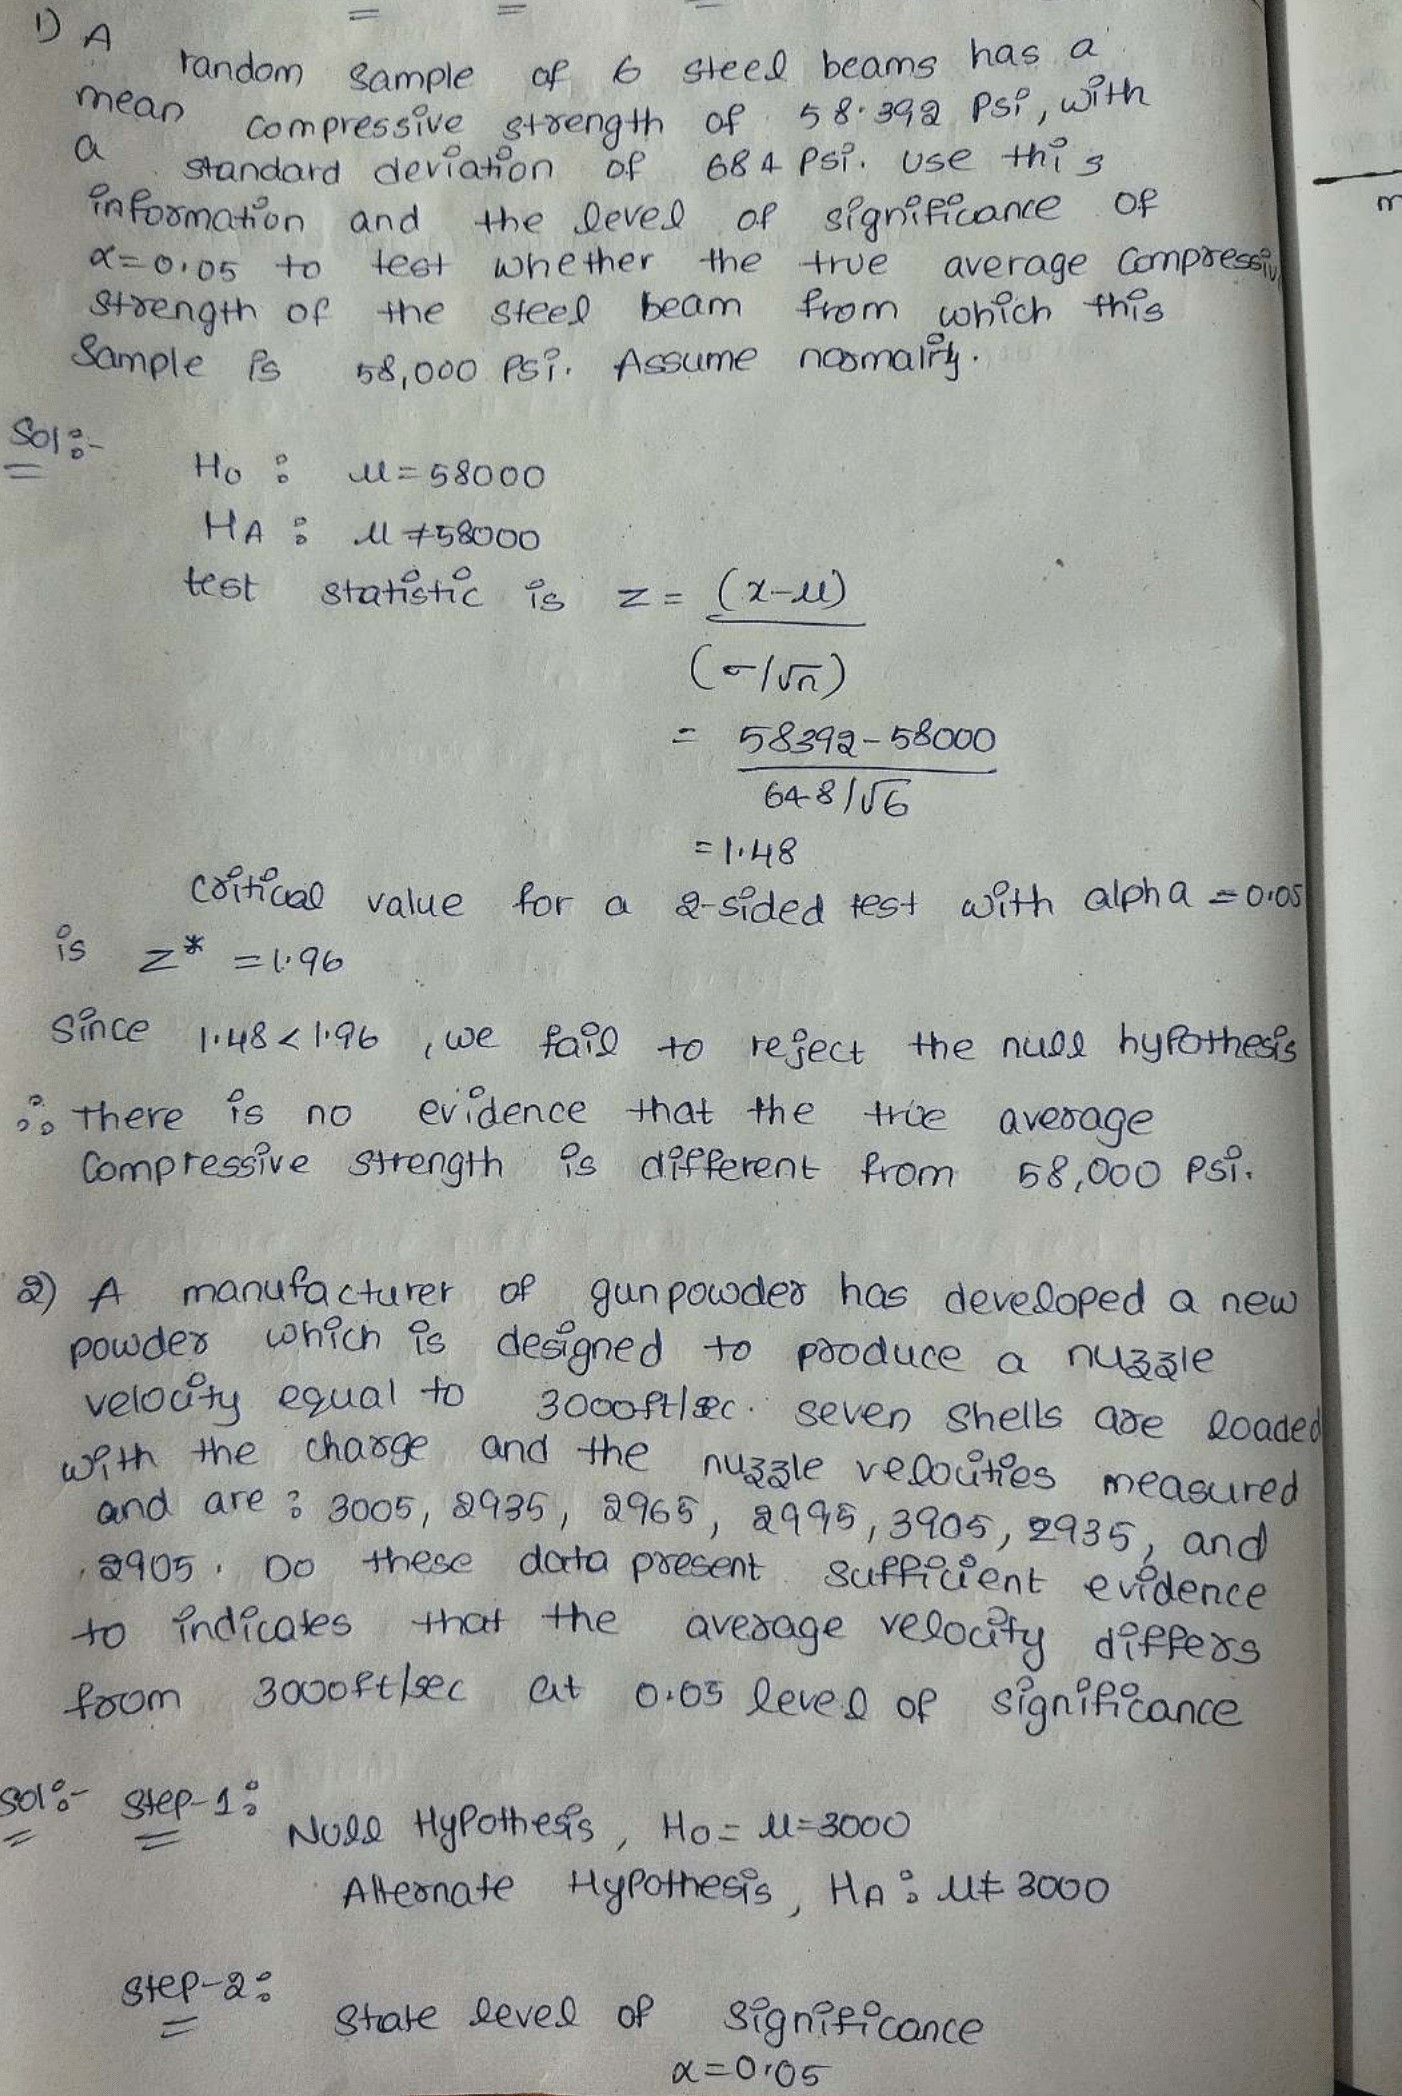 1) A
random sample of 6 steel beams has a
mean compressive strength of 58.392 psi, with
a standard deviation of 684 psi. use this
information and the level of significance of
α=0.05 to test whether the true average compressiv
strength of the steel beam from which this
Sample is 58,000 psi. Assume normality.
Sol:-
H0 : μ=58000
HA : μ≠58000
test statistic is z = (x-μ)
(σ/√n)
= 58392-58000
648/√6
=1.48
critical value for a 2-sided test with alpha =0.05
is z* =1.96
since 1.48<1.96 , we fail to reject the null hypothesis
∴ there is no evidence that the true average
compressive strength is different from 58,000 psi.
2) A manufacturer of gunpowder has developed a new
powder which is designed to produce a nuzzle
velocity equal to 3000ft/sec. seven shells are loaded
with the charge and the nuzzle velocities measured
and are : 3005, 2935, 2965, 2995, 3905, 2935, and
2905. Do these data present sufficient evidence
to indicates that the average velocity differs
from 3000ft/sec at 0.05 level of significance
sol:- step-1:
Null Hypothesis, H0= μ=3000
Alternate Hypothesis, HA: μ≠ 3000
step-2:
State level of significance
α=0.05